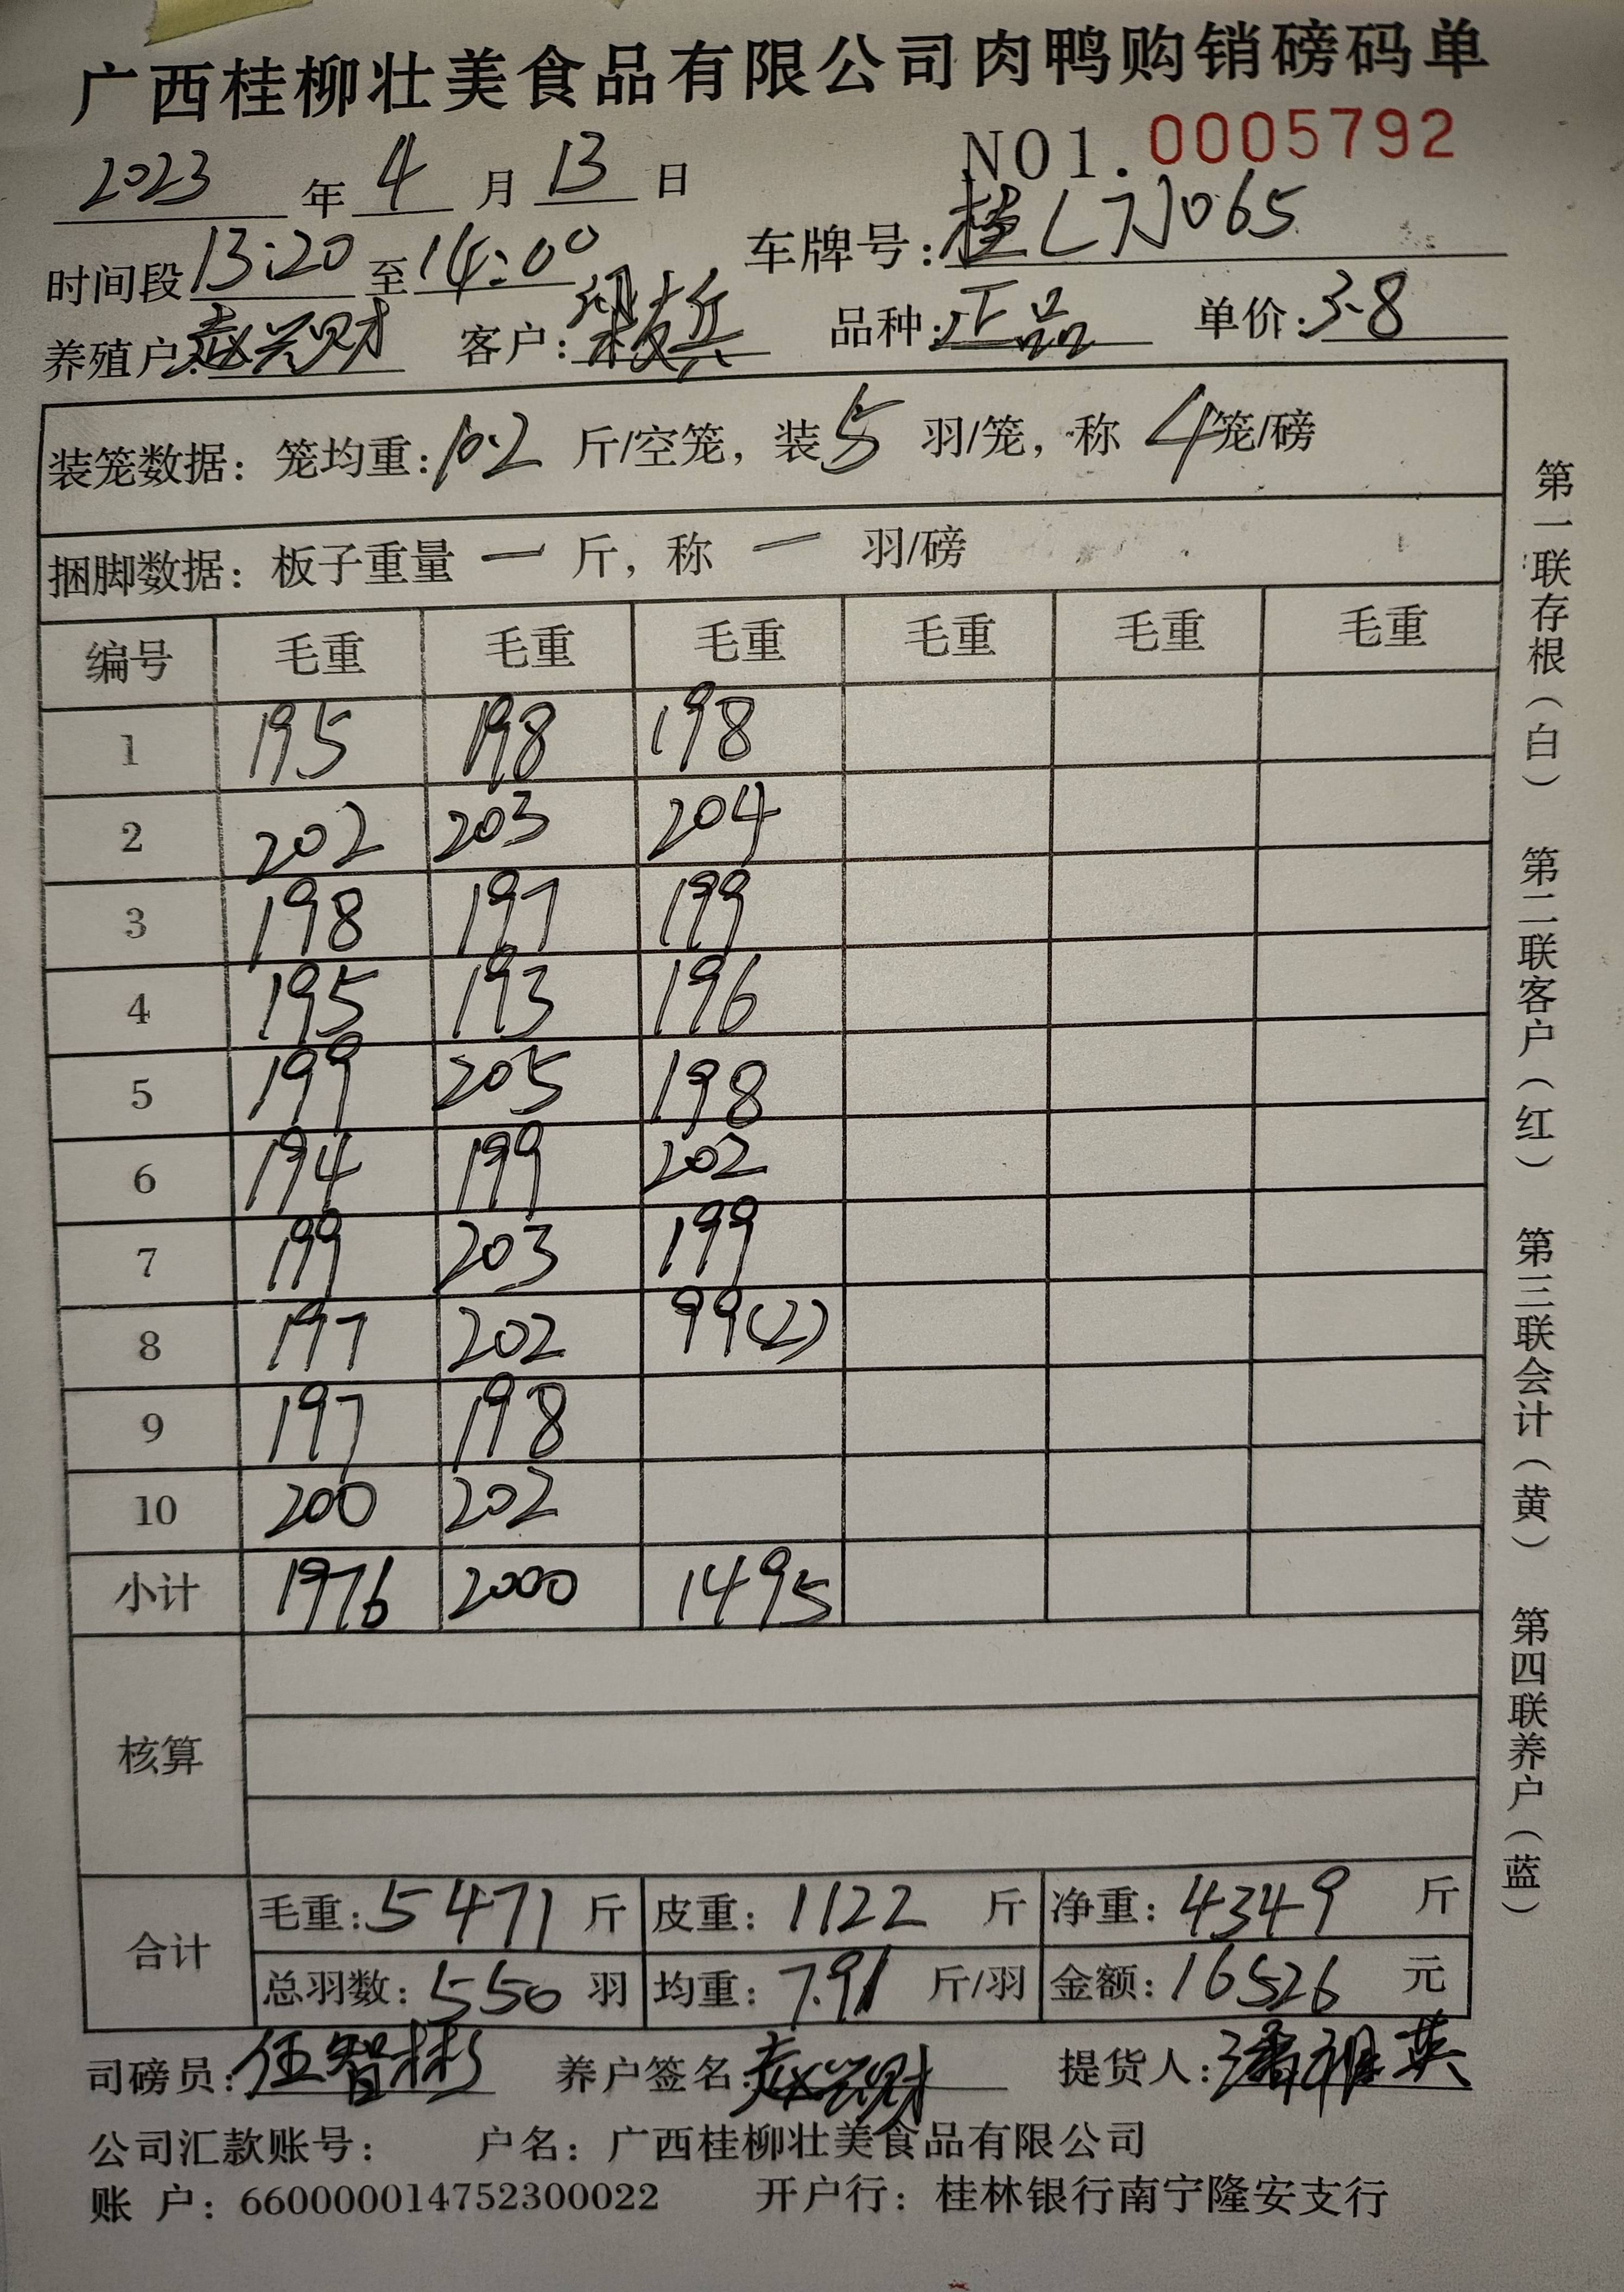 广西桂柳壮美食品有限公司肉鸭购销磅码单
NO1.0005792
2023 年 4 月 13 日
时间段 13:20 至 14:00 车牌号:桂L71065
养殖户:赵兴财 客户:梁枝兵 品种:正品 单价:3.8
装笼数据:笼均重:10.2 斤/空笼,装 5 羽/笼,称 4 笼/磅
捆脚数据:板子重量 一 斤,称 一 羽/磅
编号 毛重 毛重 毛重 毛重 毛重 毛重
1 195 198 198
2 202 203 204
3 198 197 199
4 195 193 196
5 199 205 198
6 194 199 202
7 199 203 199
8 197 202 99(2)
9 197 198
10 200 202
小计 1976 2000 1495
核算
合计
毛重:5471 斤 皮重:1122 斤 净重:4349 斤
总羽数:550 羽 均重:7.91 斤/羽 金额:16526 元
司磅员:伍智彬 养户签名:赵兴财 提货人:潘祖英
公司汇款账号: 户名:广西桂柳壮美食品有限公司
账 户:660000014752300022 开户行:桂林银行南宁隆安支行
第一联存根(白) 第二联客户(红) 第三联会计(黄) 第四联养户(蓝)